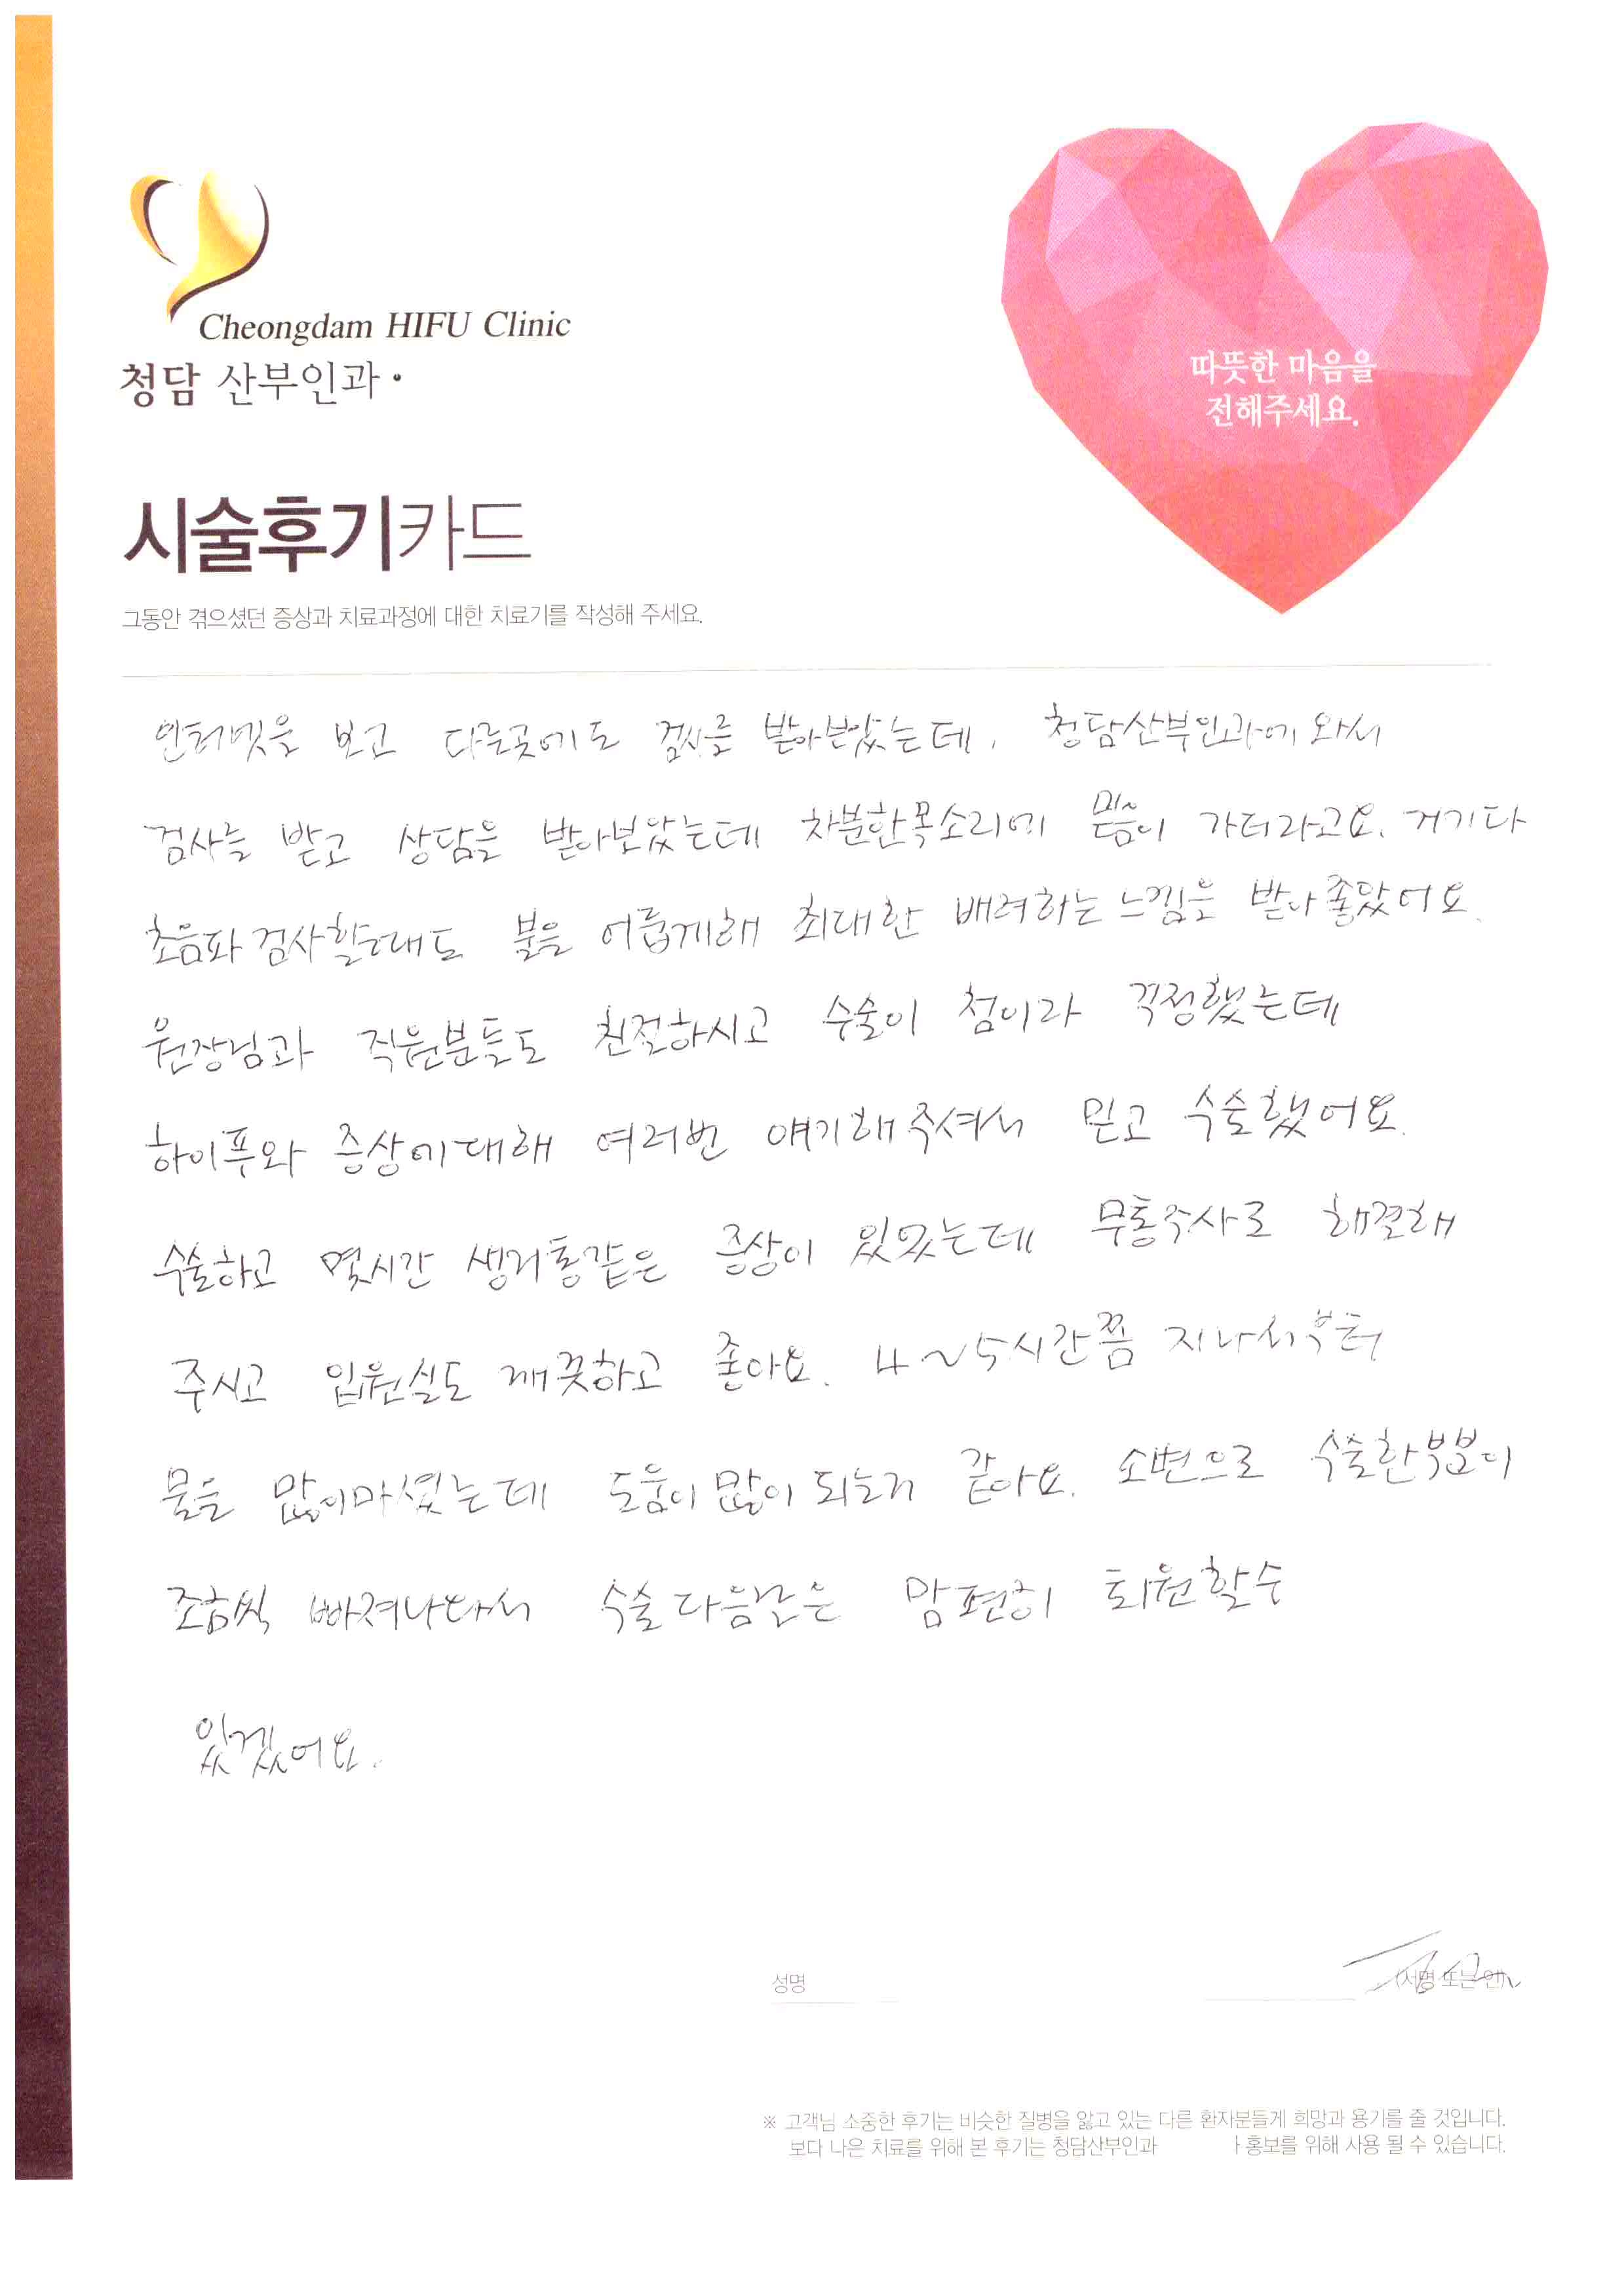 Cheongdam HIFU Clinic
청담 산부인과
따뜻한 마음을
전해주세요.
시술후기카드
그동안 겪으셨던 증상과 치료과정에 대한 치료기를 작성해 주세요.
인터넷을 보고 다른곳에도 검사를 받아봤았는데, 청담산부인과에 와서
검사를 받고 상담을 받아보았는데 차분한목소리에 믿음이 가더라고요. 거기다
초음파 검사할때도 불을 어둡게해 최대한 배려하는 느낌을 받아 좋았어요.
원장님과 직원분들도 친절하시고 수술이 첨이라 걱정했는데
하이푸와 증상에대해 여러번 얘기해주셔서 믿고 수술했어요.
수술하고 몇시간 생리통같은 증상이 있었는데 무통주사로 해결해
주시고 입원실도 깨끗하고 좋아요. 4~5시간쯤 지나서부터
물을 많이마셨는데 도움이 많이 되는거 같아요. 소변으로 수술한부분이
조금씩 빠져나와서 수술다음날은 맘편히 퇴원할수
있겠어요.
성명
(서명 또는 인)
※ 고객님 소중한 후기는 비슷한 질병을 앓고 있는 다른 환자분들게 희망과 용기를 줄 것입니다.
보다 나은 치료를 위해 본 후기는 청담산부인과 홍보를 위해 사용 될 수 있습니다.